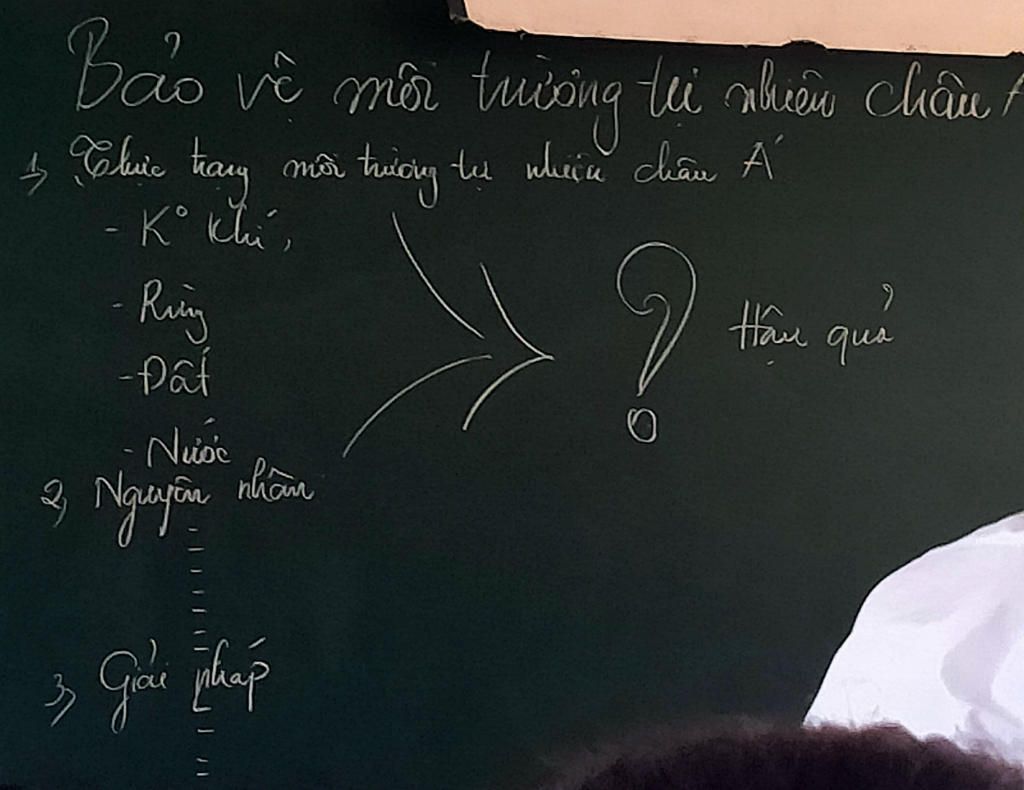 Bảo vệ môi trường tự nhiên châu Á
1, Thực trạng môi trường tự nhiên châu Á
- K° khí,
- Rừng
- Đất
- Nước
? Hậu quả
2, Nguyên nhân
3, Giải pháp